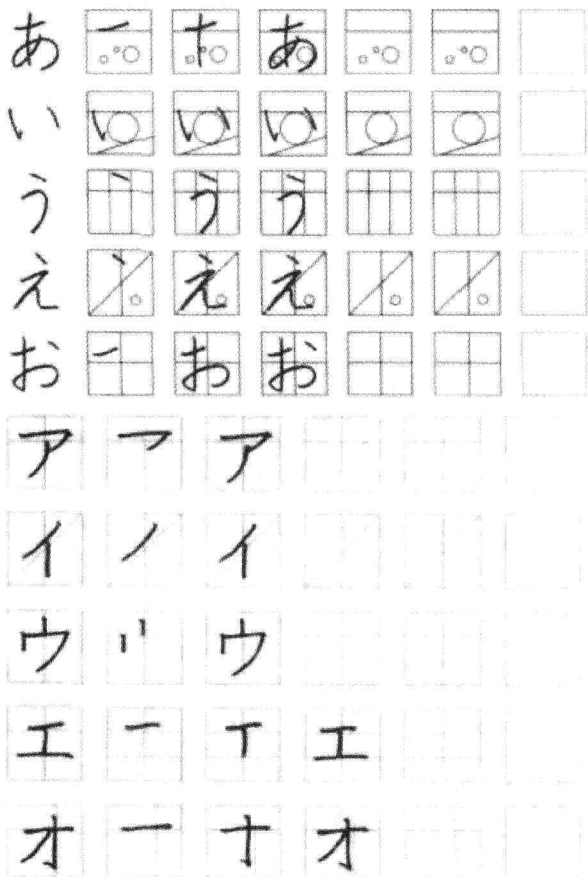 あ あ
い い い
う う う
え え え
お お お
ア ア
イ イ
ウ ウ
エ エ
オ オ